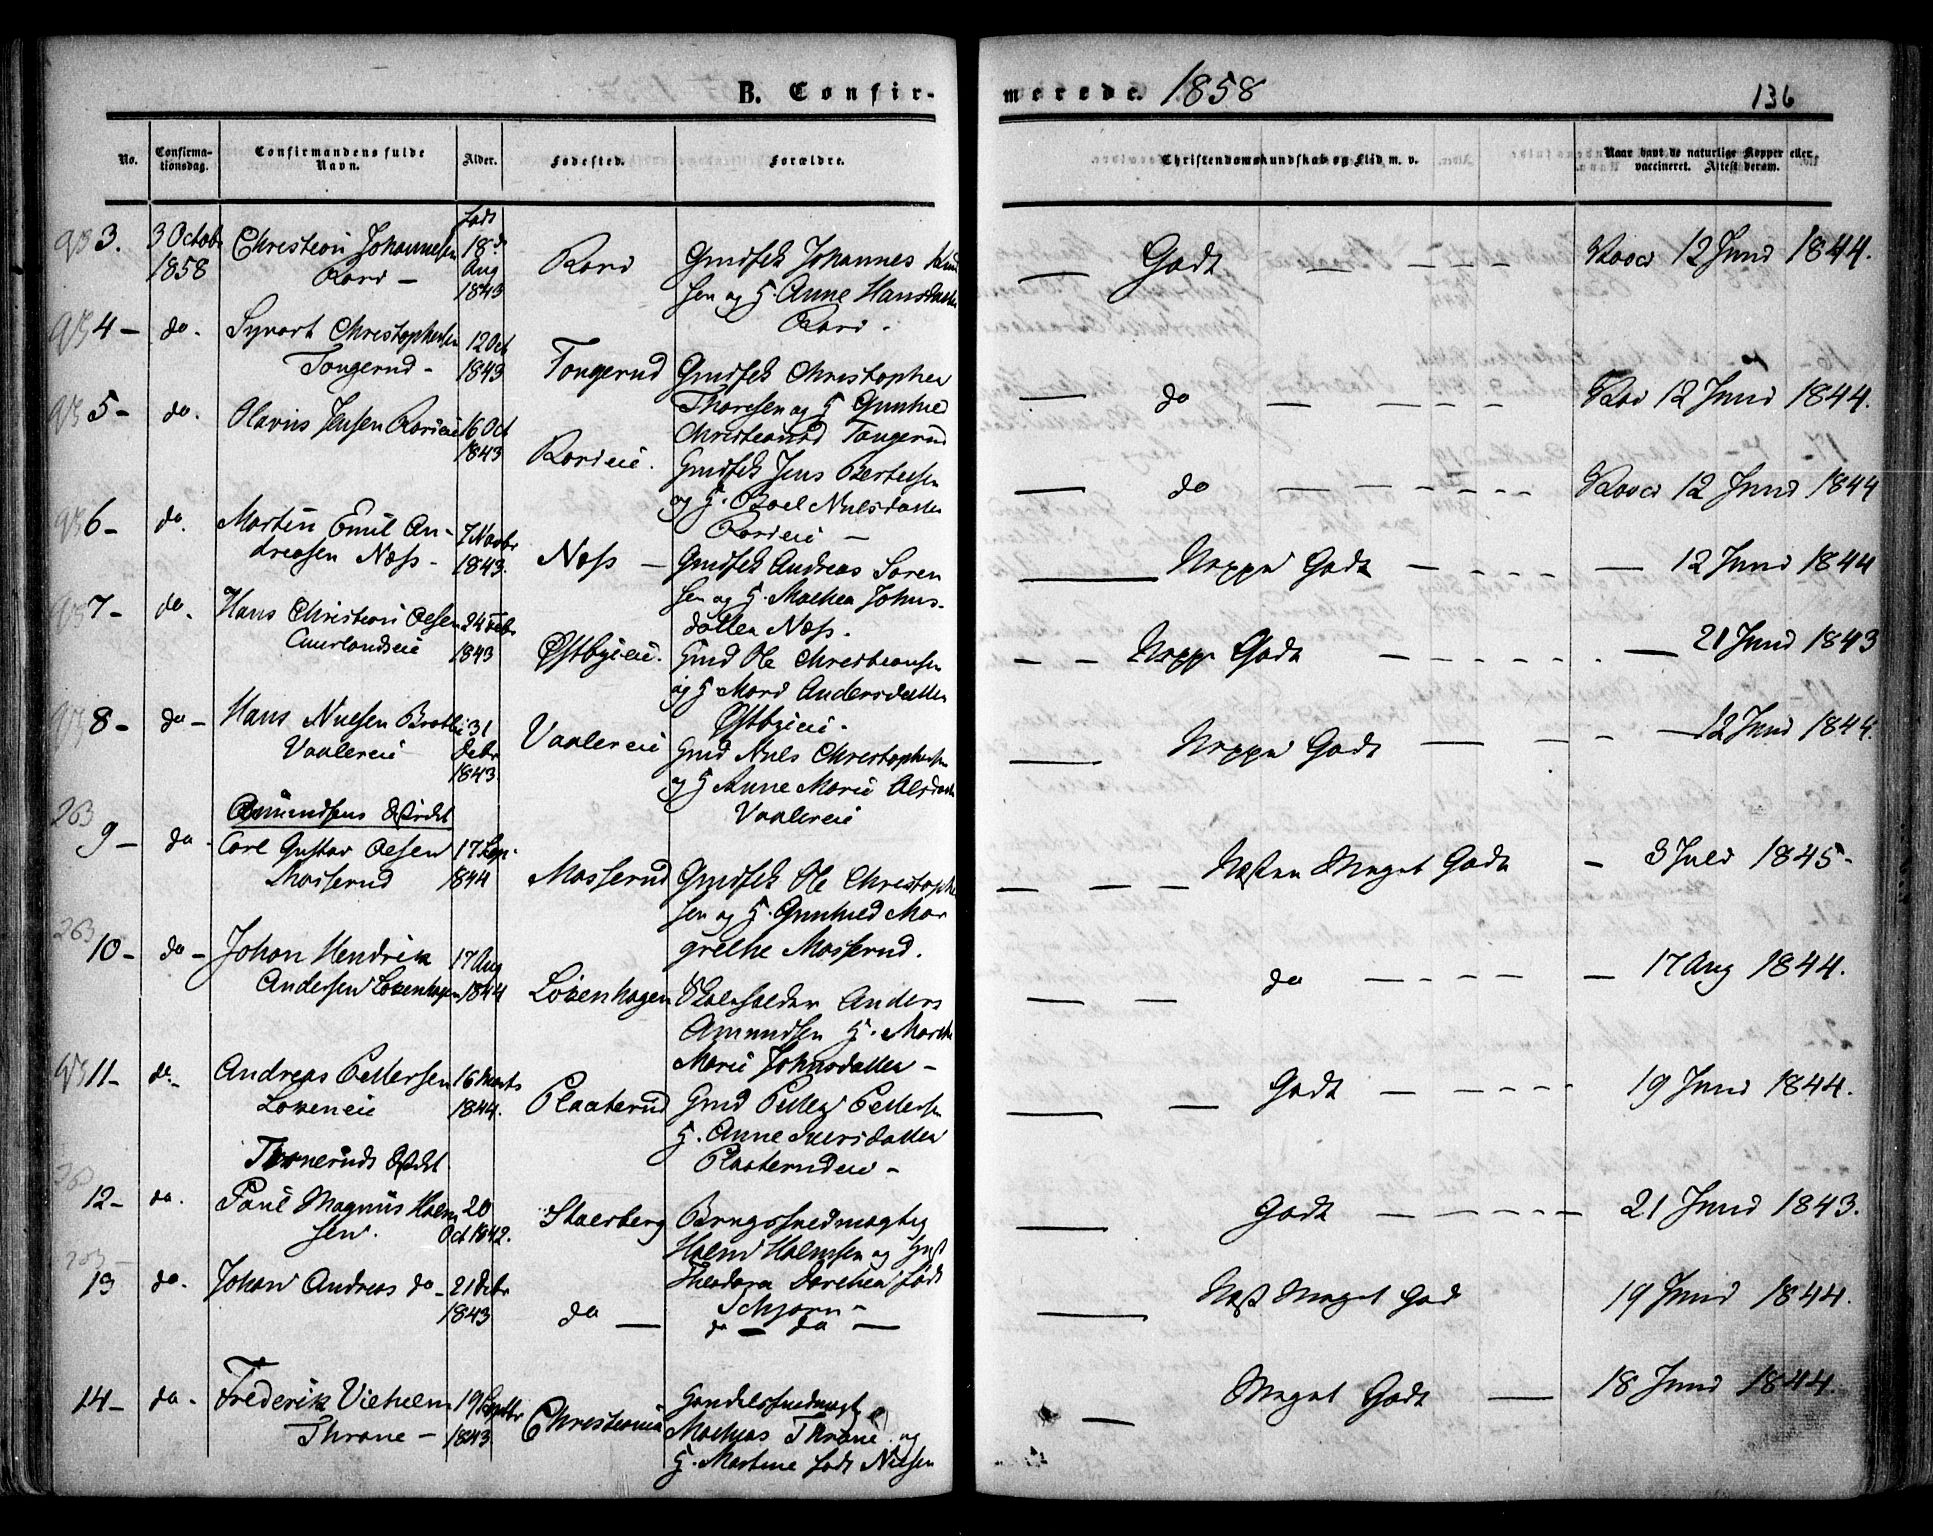 B. Confir-
merede. 1858
136
No.
Confirma-
tionsdag.
Confirmandens fulde
Navn.
Alder.
Fødested.
Forældre.
Christendomskundskab og Flid m. v.
Naar havt de naturlige Kopper eller
vaccineret. Attest derom.
3. 3 Octob 1858
Christian Johannesen
Rori -
født
18de
Aug
1843
Rori
Gmdfk Johannes
sen og H. Anne Hansdatter
Rori -
Godt
12 Juni 1844.
4 - do.
Syvert Christophersen
Tongerud -
12 Oct
1843
Tongerud
Gmdfk Christopher
Thoresen og H Gunhild
Christiansd Tongerud
do
12 Juni 1844.
5 - do.
Olavus Jensen Rorieie
16 Oct
1843
Rorieie.
Gmdfk Jens Bertelsen
og H. Boel Nilsdatter
Rorieie -
do
12 Juni 1844
6 - do.
Martin Emil An-
dreasen Næss -
7 Novbr
1843.
Næss -
Gmdfk Andreas Soren
sen og H. Mathea Johns-
datter Næss.
Neppe Godt
12 Juni 1844
7 - do.
Hans Christian Olsen
Aurlandseie
24 Febr
1843
Østbyeie.
Gmd Ole Christiansen
og H Mari Andersdatter
Østbyeie.
Neppe Godt
21 Juni 1843
8 - do -
Hans Nilsen Bratli
Vaalereie
31
Debr
1843.
Vaalereie
Gmd Nils Christophersen
og H Anne Marie Olsdatter
Vaalereie
Neppe Godt
12 Juni 1844.
263
Amundsens District
9 - do.
Carl Gustav Olsen
Mosserud
17 Sep.
1844
Mosserud
Gmdfk Ole Christophe
sen og H. Gunhild Mar
grethe Mosserud.
Næsten Meget Godt
3 Juli 1845-
263
10 - do -
Johan Hendrik
Andersen Løkenhagen
17 Aug
1844
Løkenhagen
Skoleholder Anders
Amundsen H. Marthe
Marie Johnsdatter -
do
17 Aug 1844.
11 - do.-
Andreas Pettersen
Løkeneie
16 Marts
1844.
Plaaterud
Gmd Petter Pettersen
H. Anne Iversdatter
Plaaterudeie -
Godt
19 Juni 1844.
Tronerruds District
12 - do.
Paul Magnus Holm
sen.
20
Oct 1842.
Stoerberg
Brugsfuldmægtig
Holm Holmsen og Hust
Theodora Dorthea født
Schjørn -
Godt
21 Juni 1843.
13 do.
Johan Andreas do -
21 Debr
1843
do -
do - do -
Næst Meget God
19 Juni 1844.
14 - do.
Frederik Vilhelm
Thrane -
19 Septbr
1843
Christiania
Handelsfuldmægt
Mathias Thrane og
H. Martine født Nilsen
Meget Godt
18 Juni 1844.